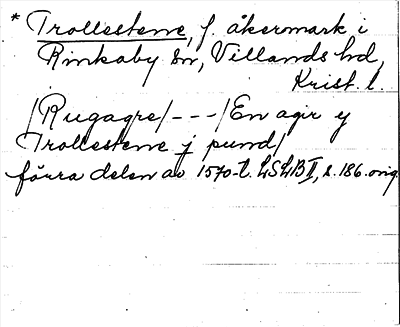 * Trollestene, f. åkermark i
Rinkaby sn, Villands hd,
Krist. l.
/Rugagre/---/En agir y
Trollestene j pund/
förra delen av 1570-t. LSLB II, s. 186. orig.